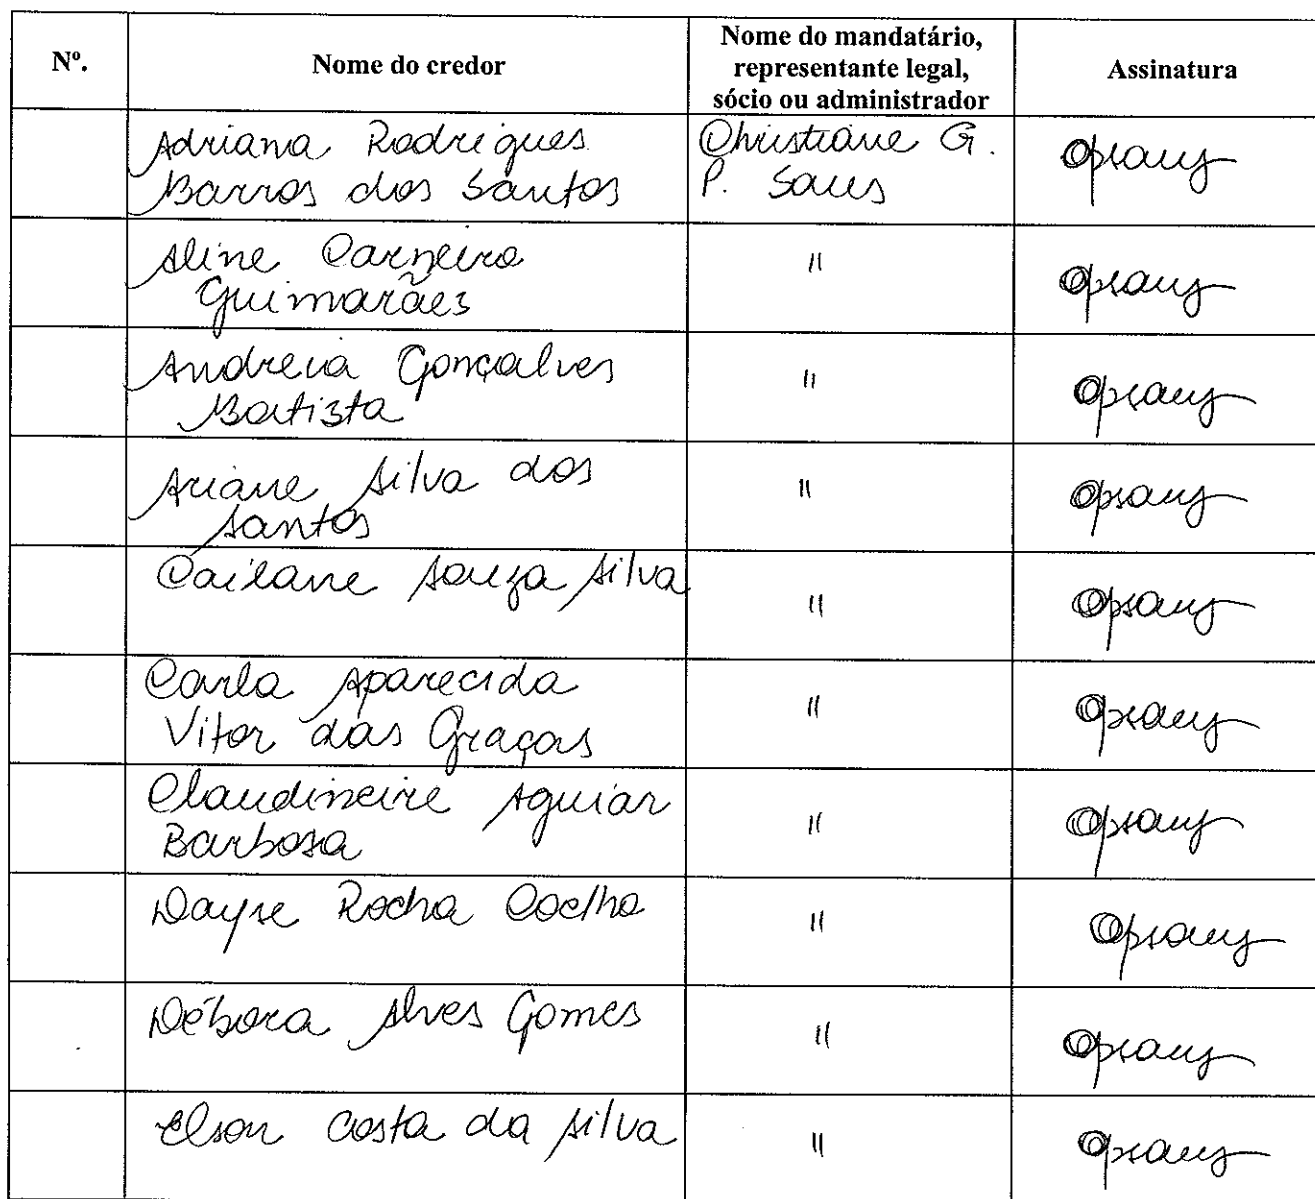 Nº.
Nome do credor
Nome do mandatário,
representante legal,
sócio ou administrador
Assinatura
Adriana Rodrigues
Barros dos Santos
Christiane G.
P.
Aline Carneiro
Guimarães
"
Andreia Gonçalves
Batista
"
Ariane Silva dos
Santos
"
Cailane Souza Silva
"
Carla Aparecida
Vitor das Graças
"
Claudineire Aguiar
Barbosa
"
Dayse Rocha Coelho
"
Débora Alves Gomes
"
Elson Costa da Silva
"